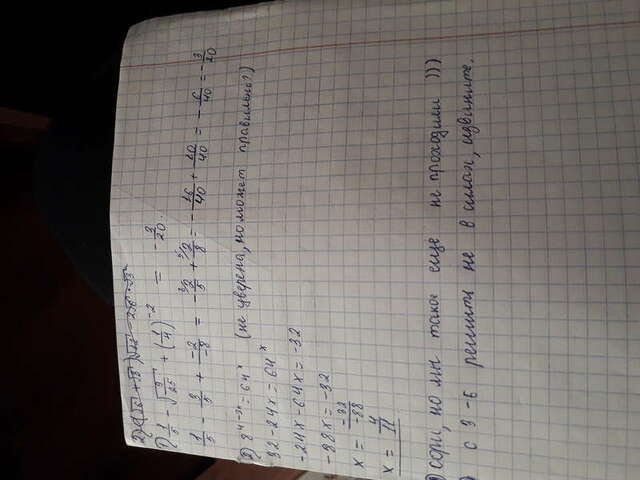 1) 1/5 - √9/25 + (1/4)^-2 = -3/20.
1/5 - 3/5 + -2/-8 = -2/5 + 2/8 = -16/40 + 10/40 = -6/40 = -3/20
2) 8^4-3x = 64^x (не уверена, но может правильно?)
32-24x = 64^x
-24x-64x = -32
-88x = -32
x = -32/-88
x = 4/11
сори, но мы такое еще не проходили )))
с 3-6 решить не в силах, извините.